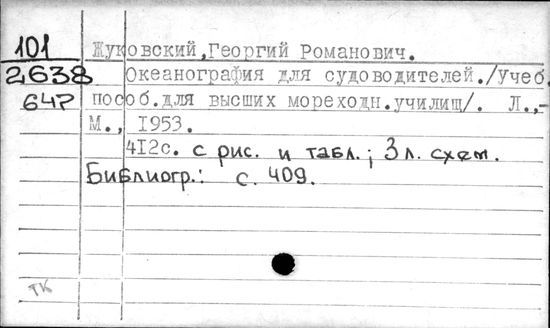 101 Жуковский,Георгий Романович.
2638 Океанография для судоводителей./Учеб.
647 пособ.для высших мореходн.училищ/. Л.,-
М., 1953.
412с. с рис. и табл.; 3 л. схем.
Библиогр.: с. 409.
тк